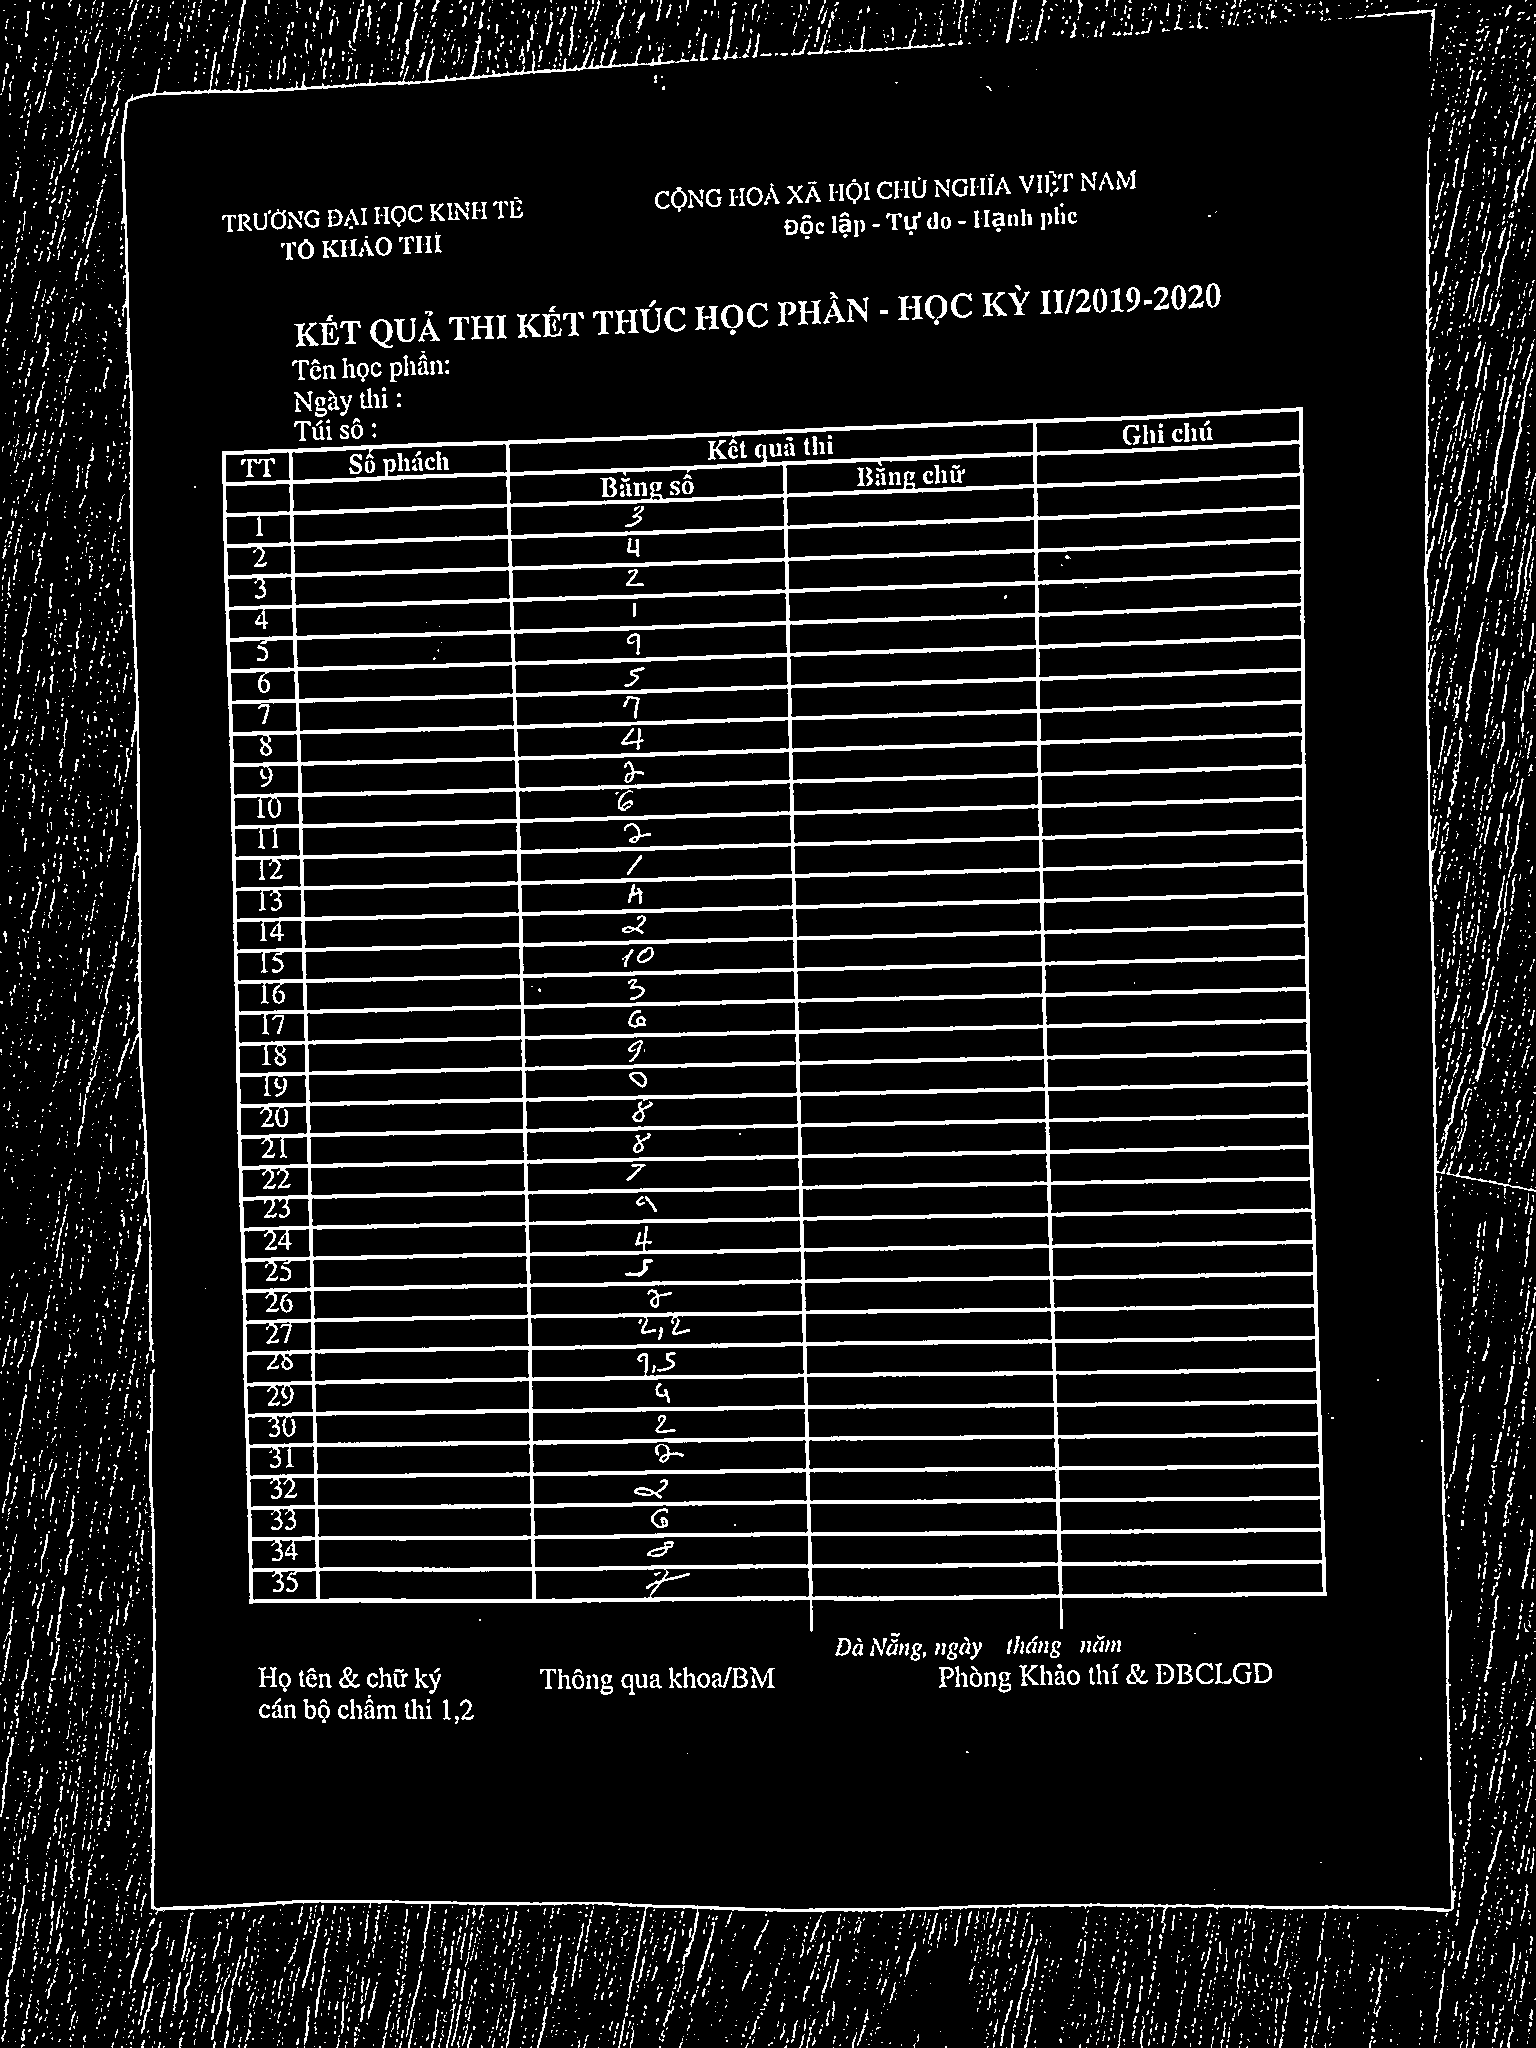 TRƯỜNG ĐẠI HỌC KINH TẾ
CỘNG HOÀ XÃ HỘI CHỦ NGHĨA VIỆT NAM
TỔ KHẢO THÍ
Độc lập - Tự do - Hạnh phc
KẾT QUẢ THI KẾT THÚC HỌC PHẦN - HỌC KỲ II/2019-2020
Tên học phần:
Ngày thi :
Túi số :
TT Số phách Kết quả thi Ghi chú
Bằng số Bằng chữ
1 3
2 4
3 2
4 1
5 9
6 5
7 7
8 4
9 2
10 6
11 2
12 1
13
14 2
15 10
16 3
17 6
18 9
19 0
20 8
21 8
22 7
23 9
24 4
25 5
26 2
27 2,2
28 9,5
29
30 2
31 2
32 2
33 6
34 8
35 7
Đà Nẵng, ngày tháng năm
Họ tên & chữ ký Thông qua khoa/BM Phòng Khảo thí & ĐBCLGD
cán bộ chấm thi 1,2